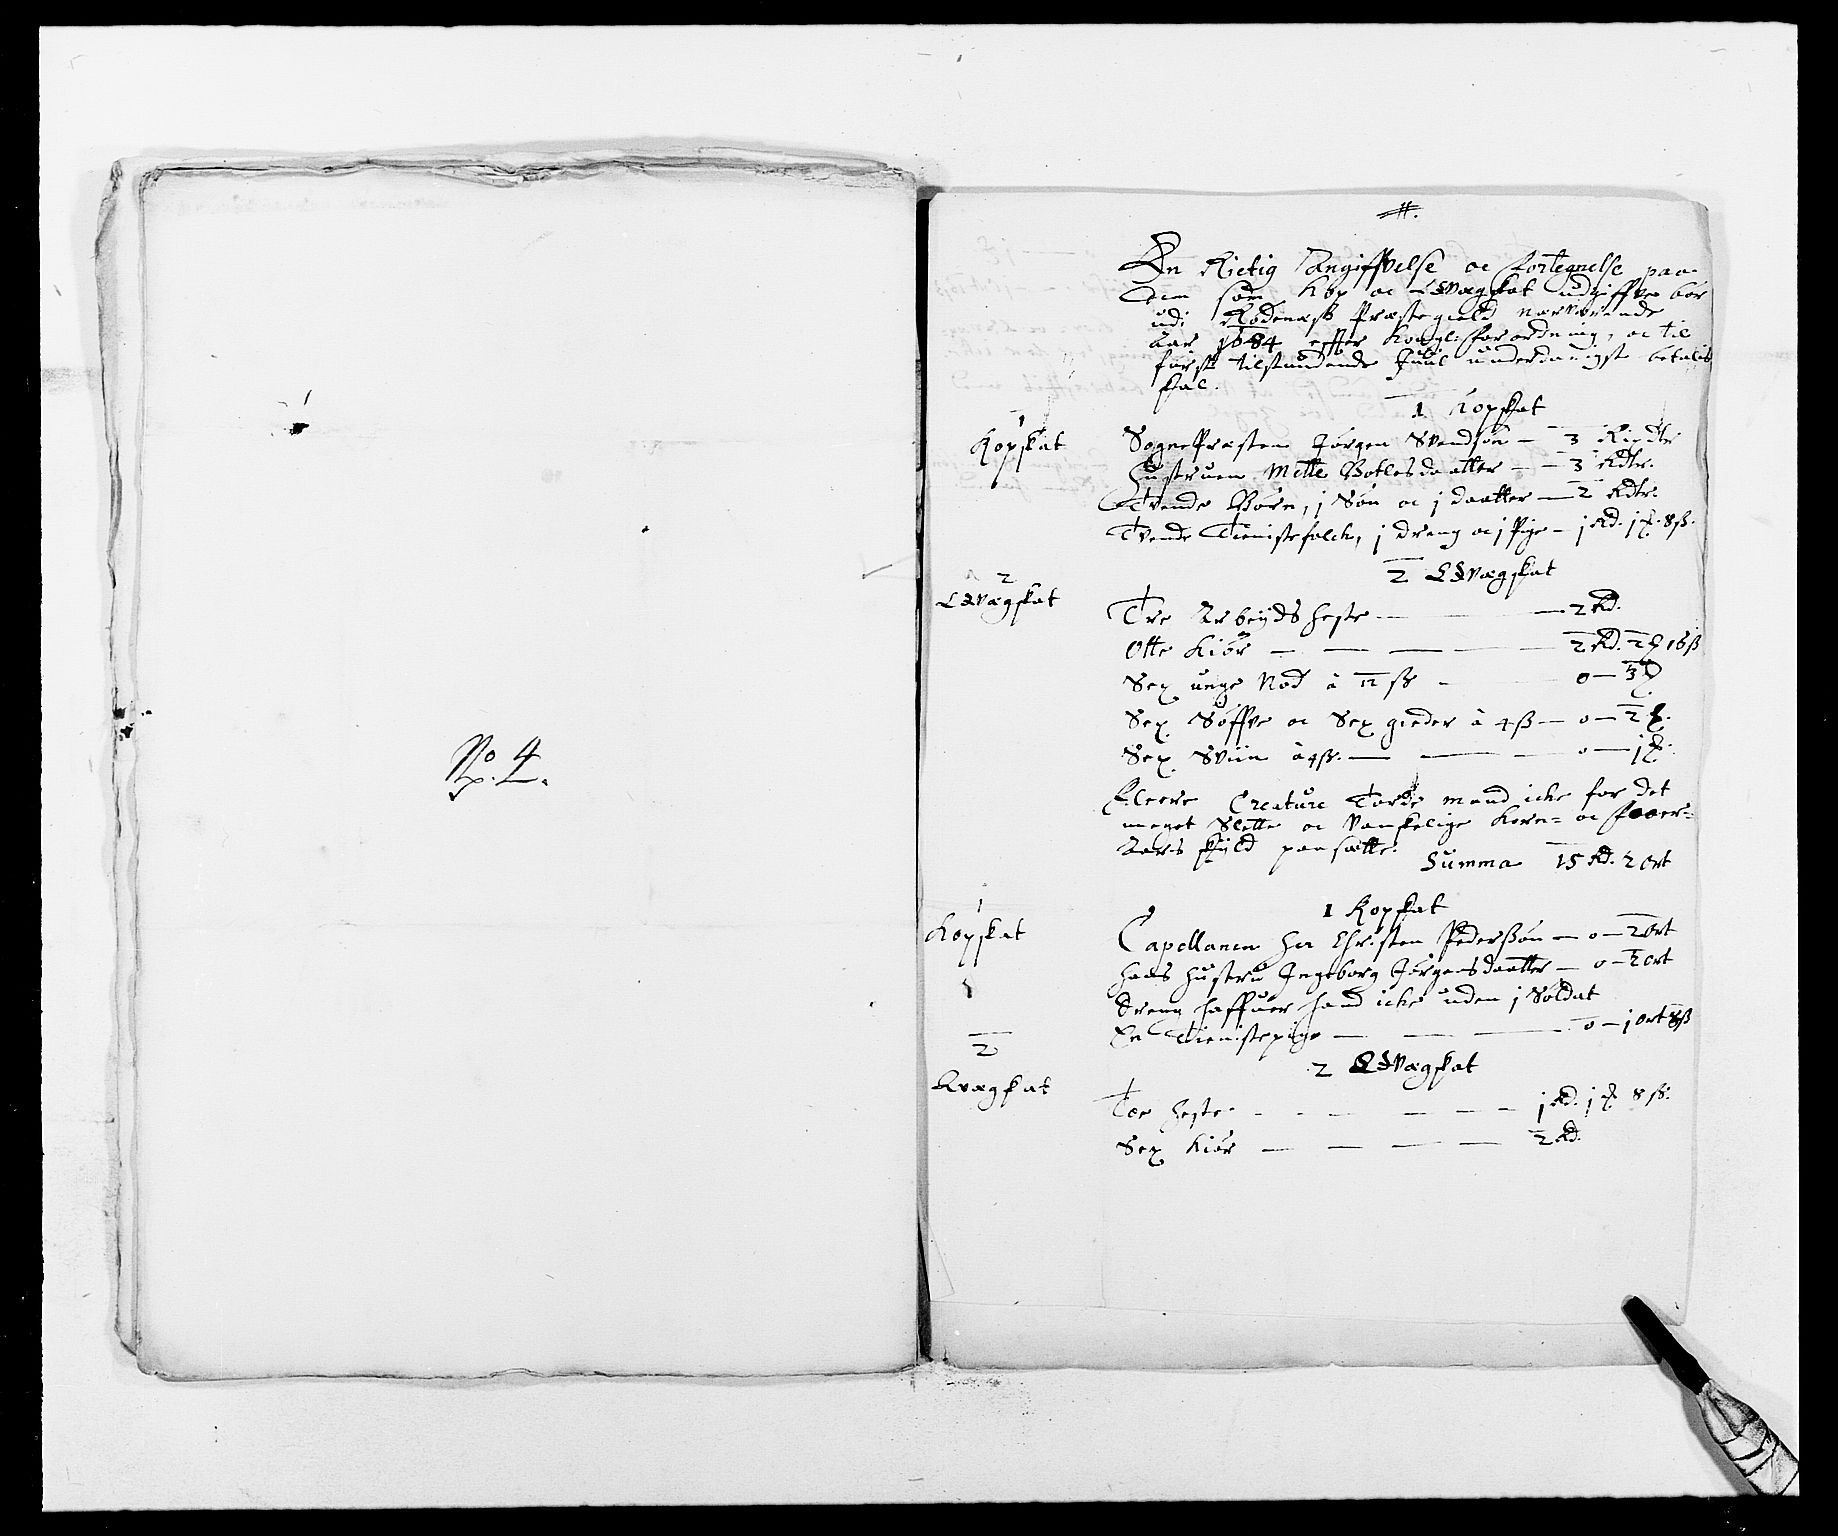 No 4.
En Rictig Angiffvelse oc fortegnelse paa
dem som Kop oc Qvægskat udgiffve bør
udi Rødenæss Præstegield nærværende
Aar 1684 effter Kongl: forordning, oc til
først tilstundende Juul underdanigst betalis
skal.
1 Kopskat
1
Kopskat
SognePræsten Jørgen Svendsøn — 3 Rixdlr
Hustruen Mette Botlesdaatter — 3 Rdlr.
Tvende Børn, j Søn oc j daatter — 2 Rdlr.
Tvende Tienistefolck, j dreng oc j Pige — j Rd. j ſ. 8 ß.
2 Qvægskat
2
Qvægskat
Tre Arbeijds heste — 2 Rd.
Otte Kiør — 2 Rd. 2 ſ 16 ß
Sex unge Nød à 12 ß — 0 — 3 ſ
Sex Søffve oc Sex gieder à 4 ß — 0 — 2 ſ.
Sex Sviin à 4 ß. — 0 — j ſ.
Fleere Creature Torde mand icke for det
meget Slette oc Vanskelige Korn= oc Foeer=
Aars skyld paasætte.
Summa 15 Rd. 2 ort
1 Kopskat
1
Kopskat
Capellanen her Christen Pederßøn — 0 — 2 ort
hans hustru Ingeborg Jørgensdaatter — 0 — 2 ort
dreng haffuer hand icke uden j Soldat
En Tienistepige — 0 — j ort 8 ß
2 Qvægskat
2
Qvægskat
Toe heste — j Rd. j ſ 8 ß.
Sex Kiør — 2 Rd.